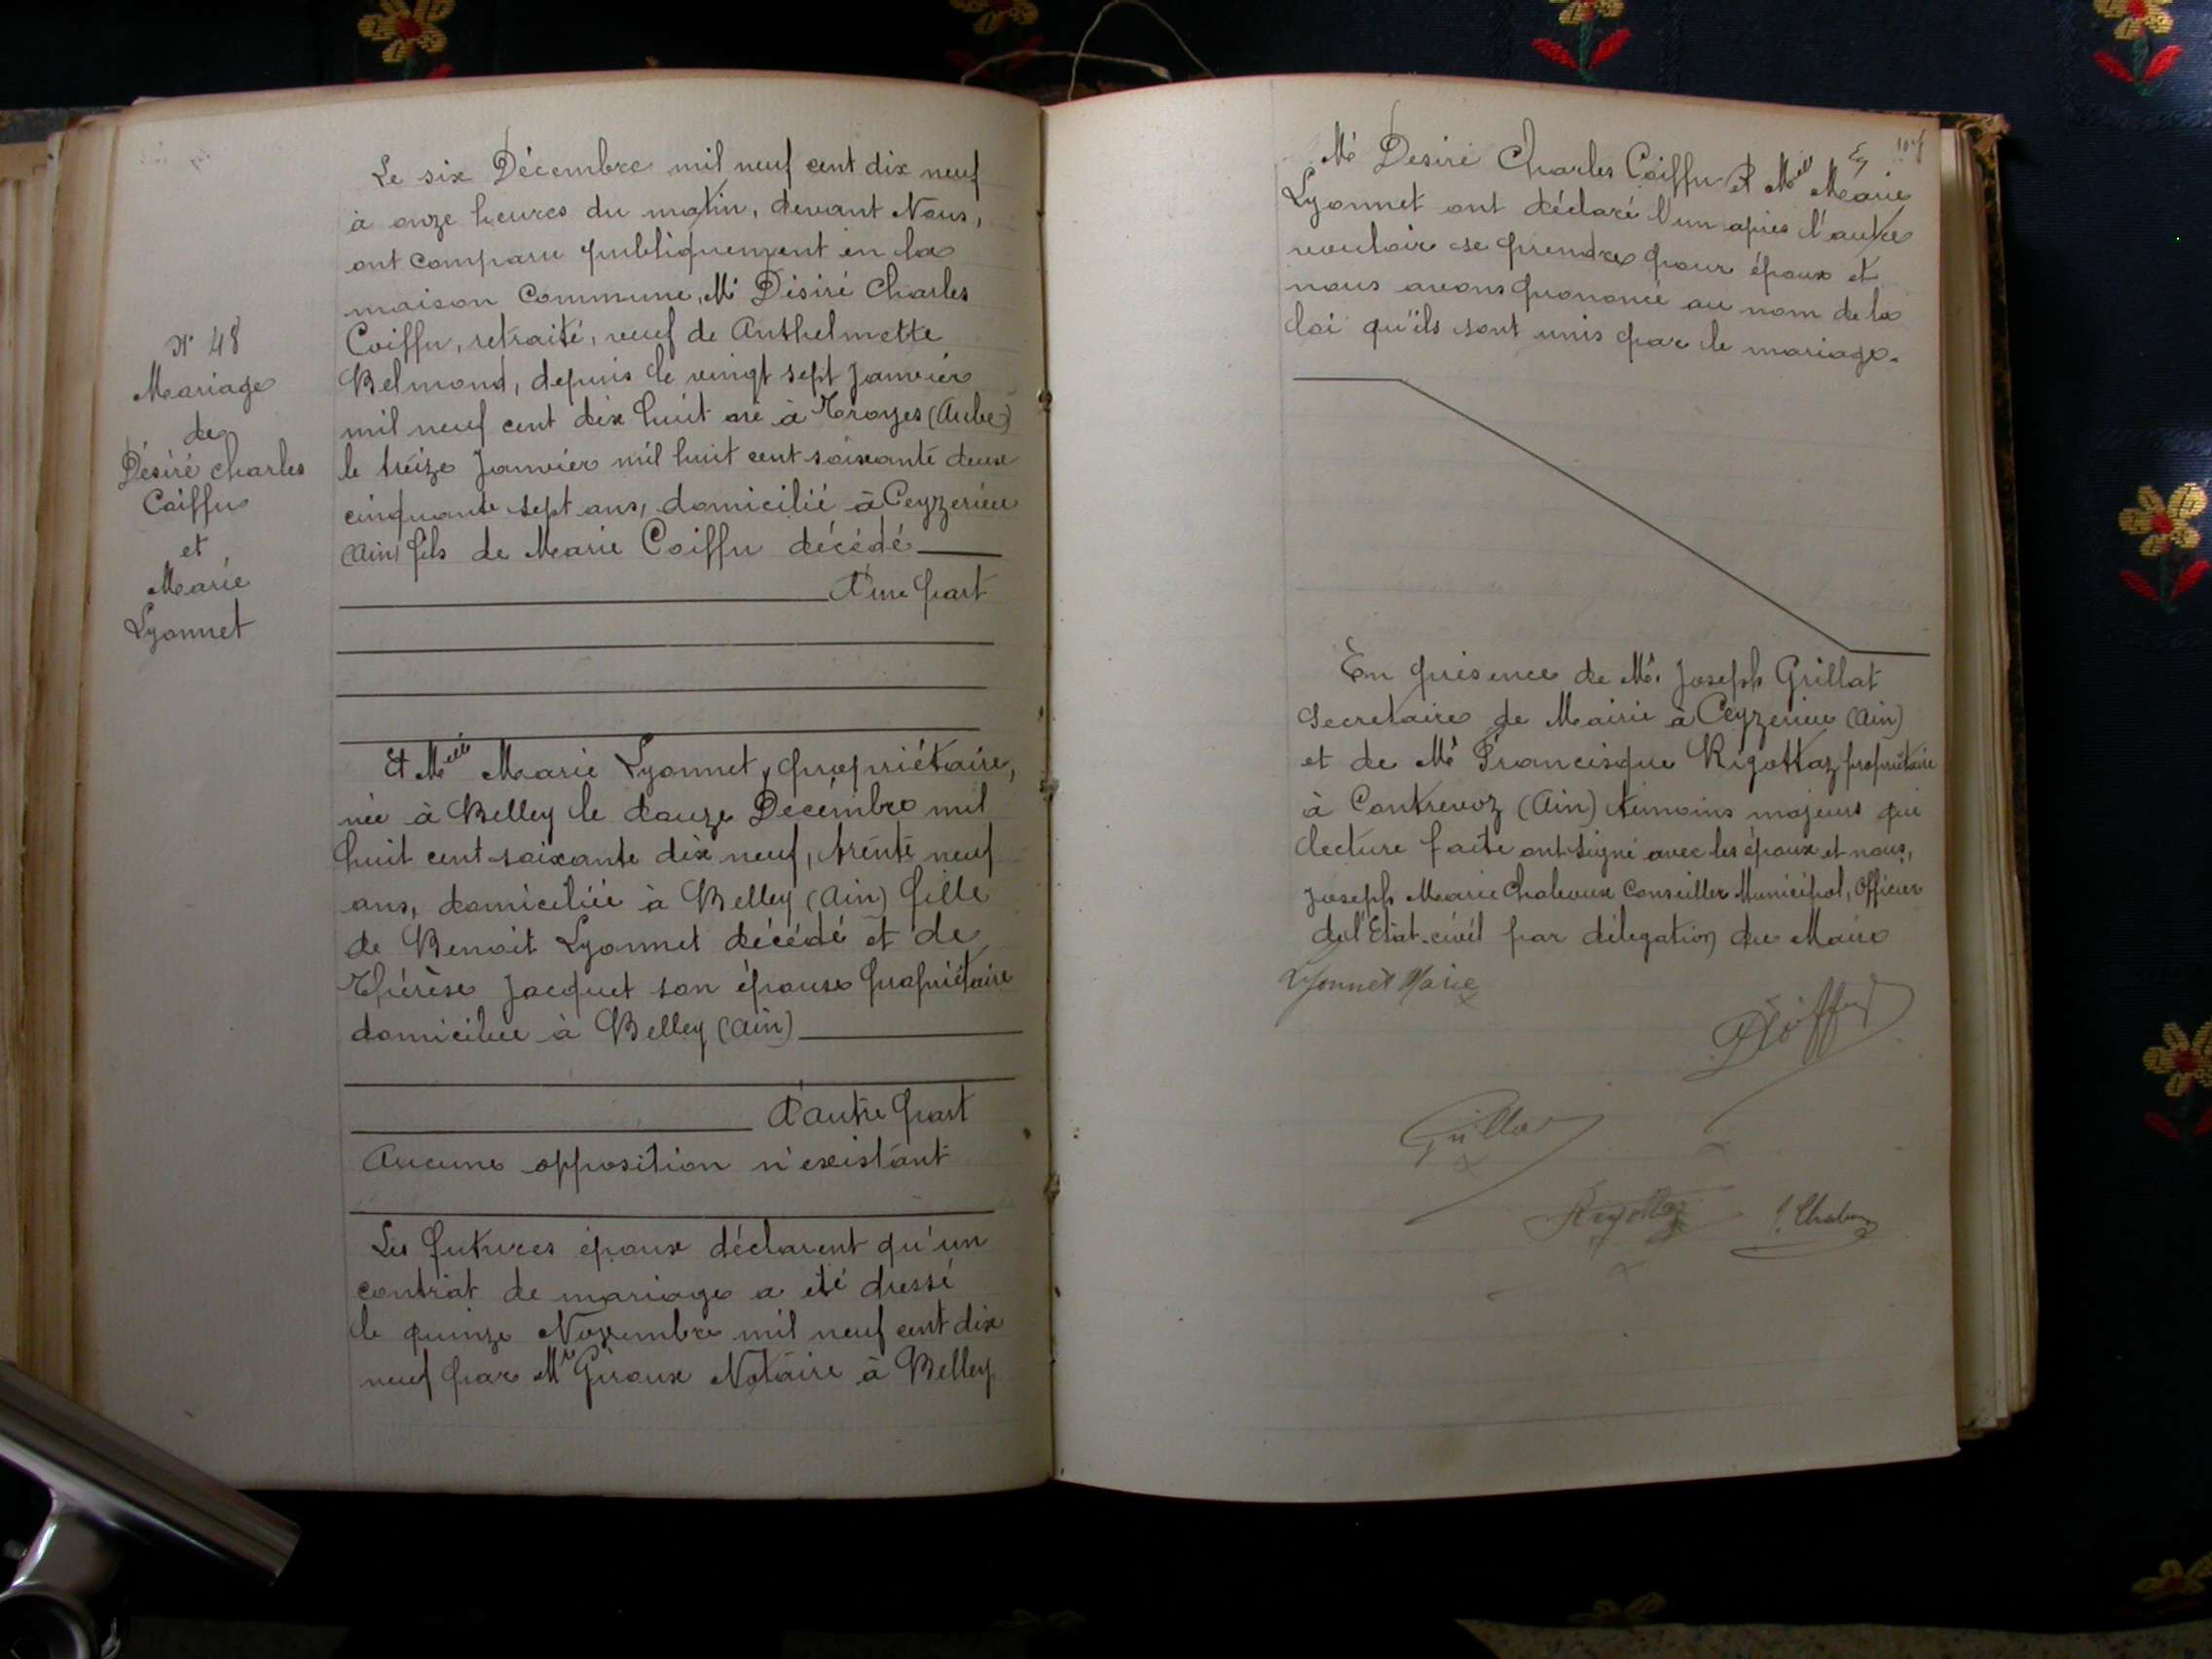 N° 48
Mariage
de
Désiré Charles
Coiffu
et
Marie
Lyonnet
Le six Décembre mil neuf cent dix neuf
à onze heures du matin, devant Nous,
ont comparu publiquement en la
maison Commune, Mr Désiré Charles
Coiffu, retraité, veuf de Anthelmette
Belmond, depuis le vingt sept Janvier
mil neuf cent dix huit né à Troyes (Aube)
le treize Janvier mil huit cent soixante deux
cinquante sept ans, domicilié à Ceyzerieu
(Ain) fils de Marie Coiffu décédé
D'une part
Et Melle Marie Lyonnet, propriétaire,
née à Belley le douze Decembre mil
huit cent soixante dix neuf, trente neuf
ans, domiciliée à Belley (Ain) fille
de Benoit Lyonnet décédé et de
Thérèse Jacquet son épouse propriétaire
domiciliée à Belley (Ain)
D'autre part
Aucune opposition n'existant
Les futures époux déclarent qu'un
contrat de mariage a été dressé
le quinze Novembre mil neuf cent dix
neuf par Me Giroux Notaire à Belley
Mr Desiré Charles Coiffu et Melle Marie
Lyonnet ont déclaré l'un après l'autre
vouloir se prendre pour époux et
nous avons prononcé au nom de la
loi qu'ils sont unis par le mariage.
En présence de Mr Joseph Grillat
Secretaire de Mairie à Ceyzerieu (Ain)
et de Mr Francisque Rigottaz propriétaire
à Contrevoz (Ain) témoins majeurs qui
lecture faite ont signé avec les époux et nous,
Joseph Marie Chaboux Conseiller Municipal, Officier
de l'Etat-civil par délegation du Maire
Lyonnet Marie
Coiffu
Grillat
Rigottaz J. Chaboux